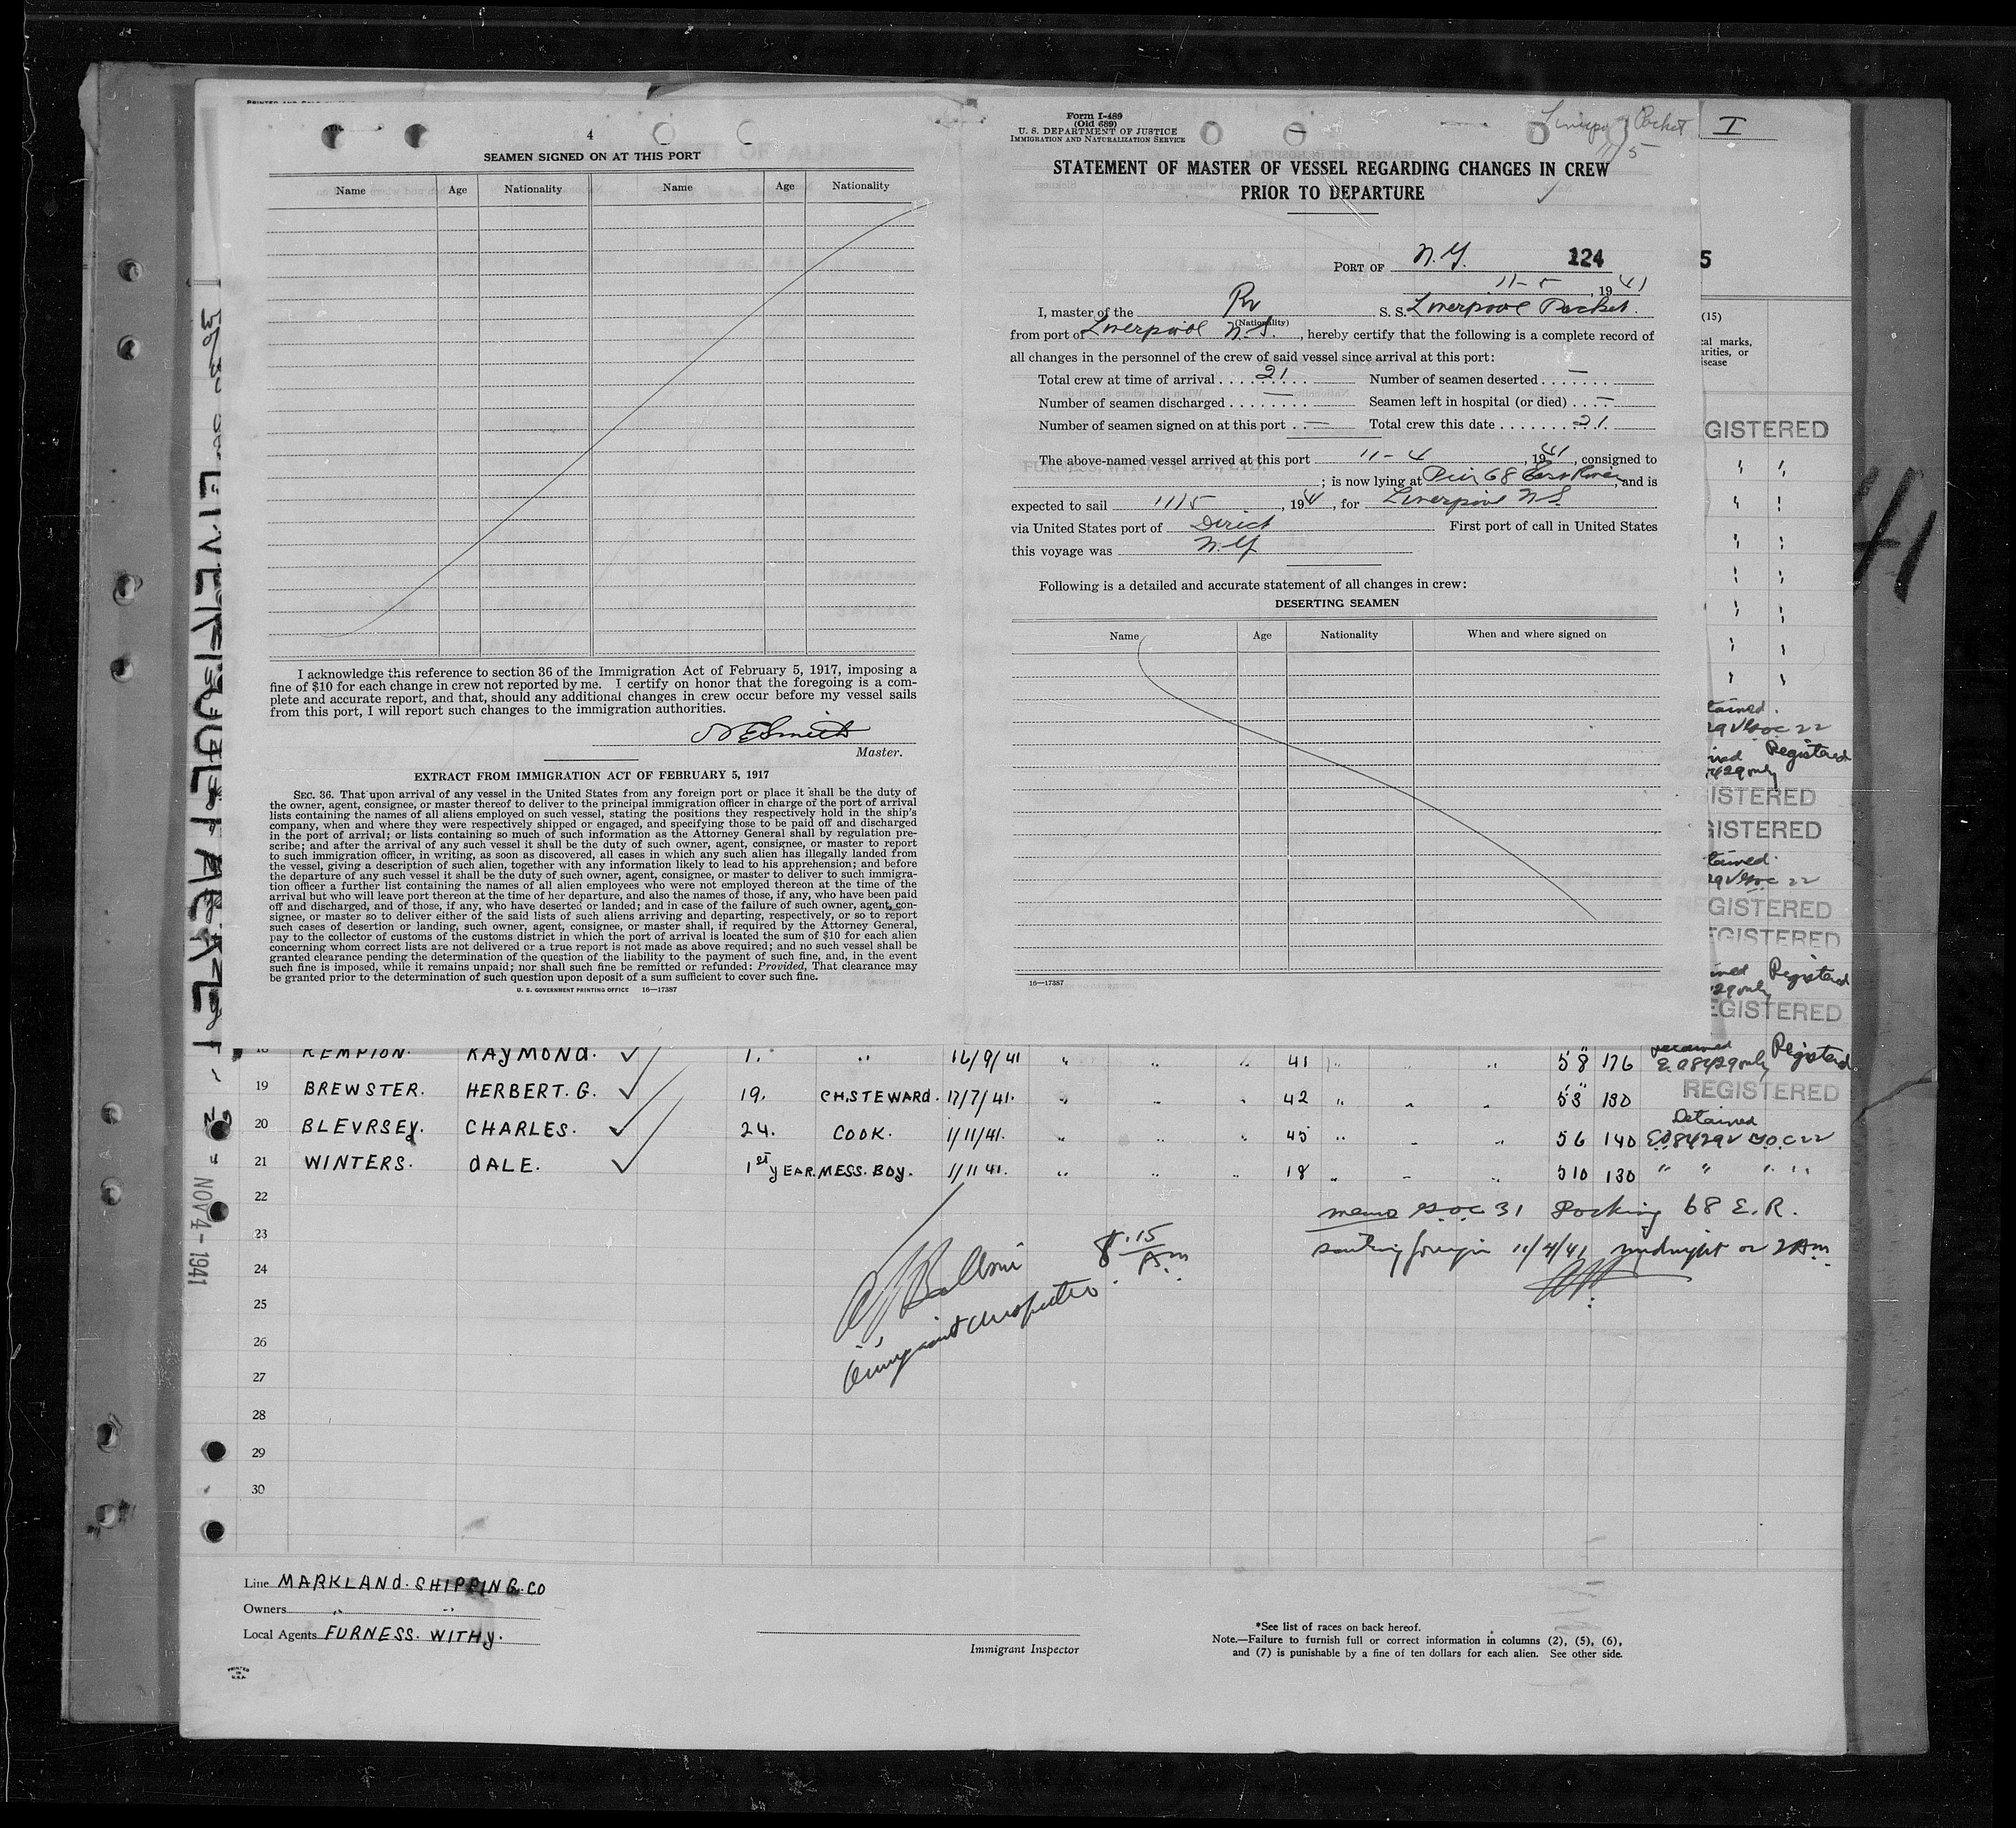 4
SEAMEN SIGNED ON AT THIS PORT
Name Age Nationality Name Age Nationality
I acknowledge this reference to section 36 of the Immigration Act of February 5, 1917, imposing a
fine of $10 for each change in crew not reported by me. I certify on honor that the foregoing is a com-
plete and accurate report, and that, should any additional changes in crew occur before my vessel sails
from this port, I will report such changes to the immigration authorities.
Smith
Master.
EXTRACT FROM IMMIGRATION ACT OF FEBRUARY 5, 1917
SEC. 36. That upon arrival of any vessel in the United States from any foreign port or place it shall be the duty of
the owner, agent, consignee, or master thereof to deliver to the principal immigration officer in charge of the port of arrival
lists containing the names of all aliens employed on such vessel, stating the positions they respectively hold in the ship's
company, when and where they were respectively shipped or engaged, and specifying those to be paid off and discharged
in the port of arrival; or lists containing so much of such information as the Attorney General shall by regulation pre-
scribe; and after the arrival of any such vessel it shall be the duty of such owner, agent, consignee, or master to report
to such immigration officer, in writing, as soon as discovered, all cases in which any such alien has illegally landed from
the vessel, giving a description of such alien, together with any information likely to lead to his apprehension; and before
the departure of any such vessel it shall be the duty of such owner, agent, consignee, or master to deliver to such immigra-
tion officer a further list containing the names of all alien employees who were not employed thereon at the time of the
arrival but who will leave port thereon at the time of her departure, and also the names of those, if any, who have been paid
off and discharged, and of those, if any, who have deserted or landed; and in case of the failure of such owner, agent, con-
signee, or master so to deliver either of the said lists of such aliens arriving and departing, respectively, or so to report
such cases of desertion or landing, such owner, agent, consignee, or master shall, if required by the Attorney General,
pay to the collector of customs of the customs district in which the port of arrival is located the sum of $10 for each alien
concerning whom correct lists are not delivered or a true report is not made as above required; and no such vessel shall be
granted clearance pending the determination of the question of the liability to the payment of such fine, and, in the event
such fine is imposed, while it remains unpaid; nor shall such fine be remitted or refunded: Provided, That clearance may
be granted prior to the determination of such question upon deposit of a sum sufficient to cover such fine.
U. S. GOVERNMENT PRINTING OFFICE 16—17387
Form I-489
(Old 689)
U. S. DEPARTMENT OF JUSTICE
IMMIGRATION AND NATURALIZATION SERVICE
Packet
11/5
I
STATEMENT OF MASTER OF VESSEL REGARDING CHANGES IN CREW
PRIOR TO DEPARTURE
PORT OF N.Y. 124
11-5, 1941
I, master of the Br S. S. Liverpool Packet.
(Nationality)
from port of Liverpool N.S., hereby certify that the following is a complete record of
all changes in the personnel of the crew of said vessel since arrival at this port:
Total crew at time of arrival 21 Number of seamen deserted —
Number of seamen discharged — Seamen left in hospital (or died) —
Number of seamen signed on at this port — Total crew this date 21
The above-named vessel arrived at this port 11-4, 1941, consigned to
FURNESS, WITHY & CO., LTD.
; is now lying at Pier 68 East River, and is
expected to sail 11/5, 1941, for Liverpool N.S.
via United States port of Direct First port of call in United States
this voyage was N.Y.
Following is a detailed and accurate statement of all changes in crew:
DESERTING SEAMEN
Name Age Nationality When and where signed on
16—17387
5
(15)
cal marks,
arities, or
isease
GISTERED
tained
Registered
ISTERED
GISTERED
tained
GISTERED
EGISTERED
Registered
EGISTERED
41
RAYMOND. 1. " 16/9/41 " " " 41 " " " 5 8 176 Registered
19 BREWSTER. HERBERT. G. 19. CH.STEWARD. 17/7/41. " " " 42 " " " 5 8 180 REGISTERED
20 BLEVRSEY. CHARLES. 24. COOK. 1/11/41. " " " 45 " " " 5 6 140 Detained
21 WINTERS. DALE. 1st YEAR. MESS. BOY. 1/11 41. " " " 18 " " " 5 10 130 " " " "
22
23
24
25
26
27
28
29
30
memo 31 Docking 68 E. R.
foreign 11/4/41 midnight or 2 AM
8.15 Am
NOV 4 - 1941
Line MARKLAND. SHIPPING. CO
Owners " "
Local Agents FURNESS. WITHY.
PRINTED
IN
U.S.A.
Immigrant Inspector
*See list of races on back hereof.
Note.—Failure to furnish full or correct information in columns (2), (5), (6),
and (7) is punishable by a fine of ten dollars for each alien. See other side.